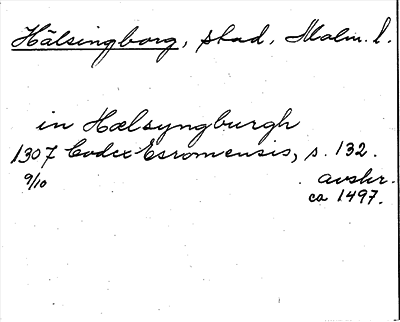 Hälsingborg, stad, Malm. l.
in Hælsyngburgh
1307 Codex Esromensis, s. 132.
9/10 avskr.
ca 1497.